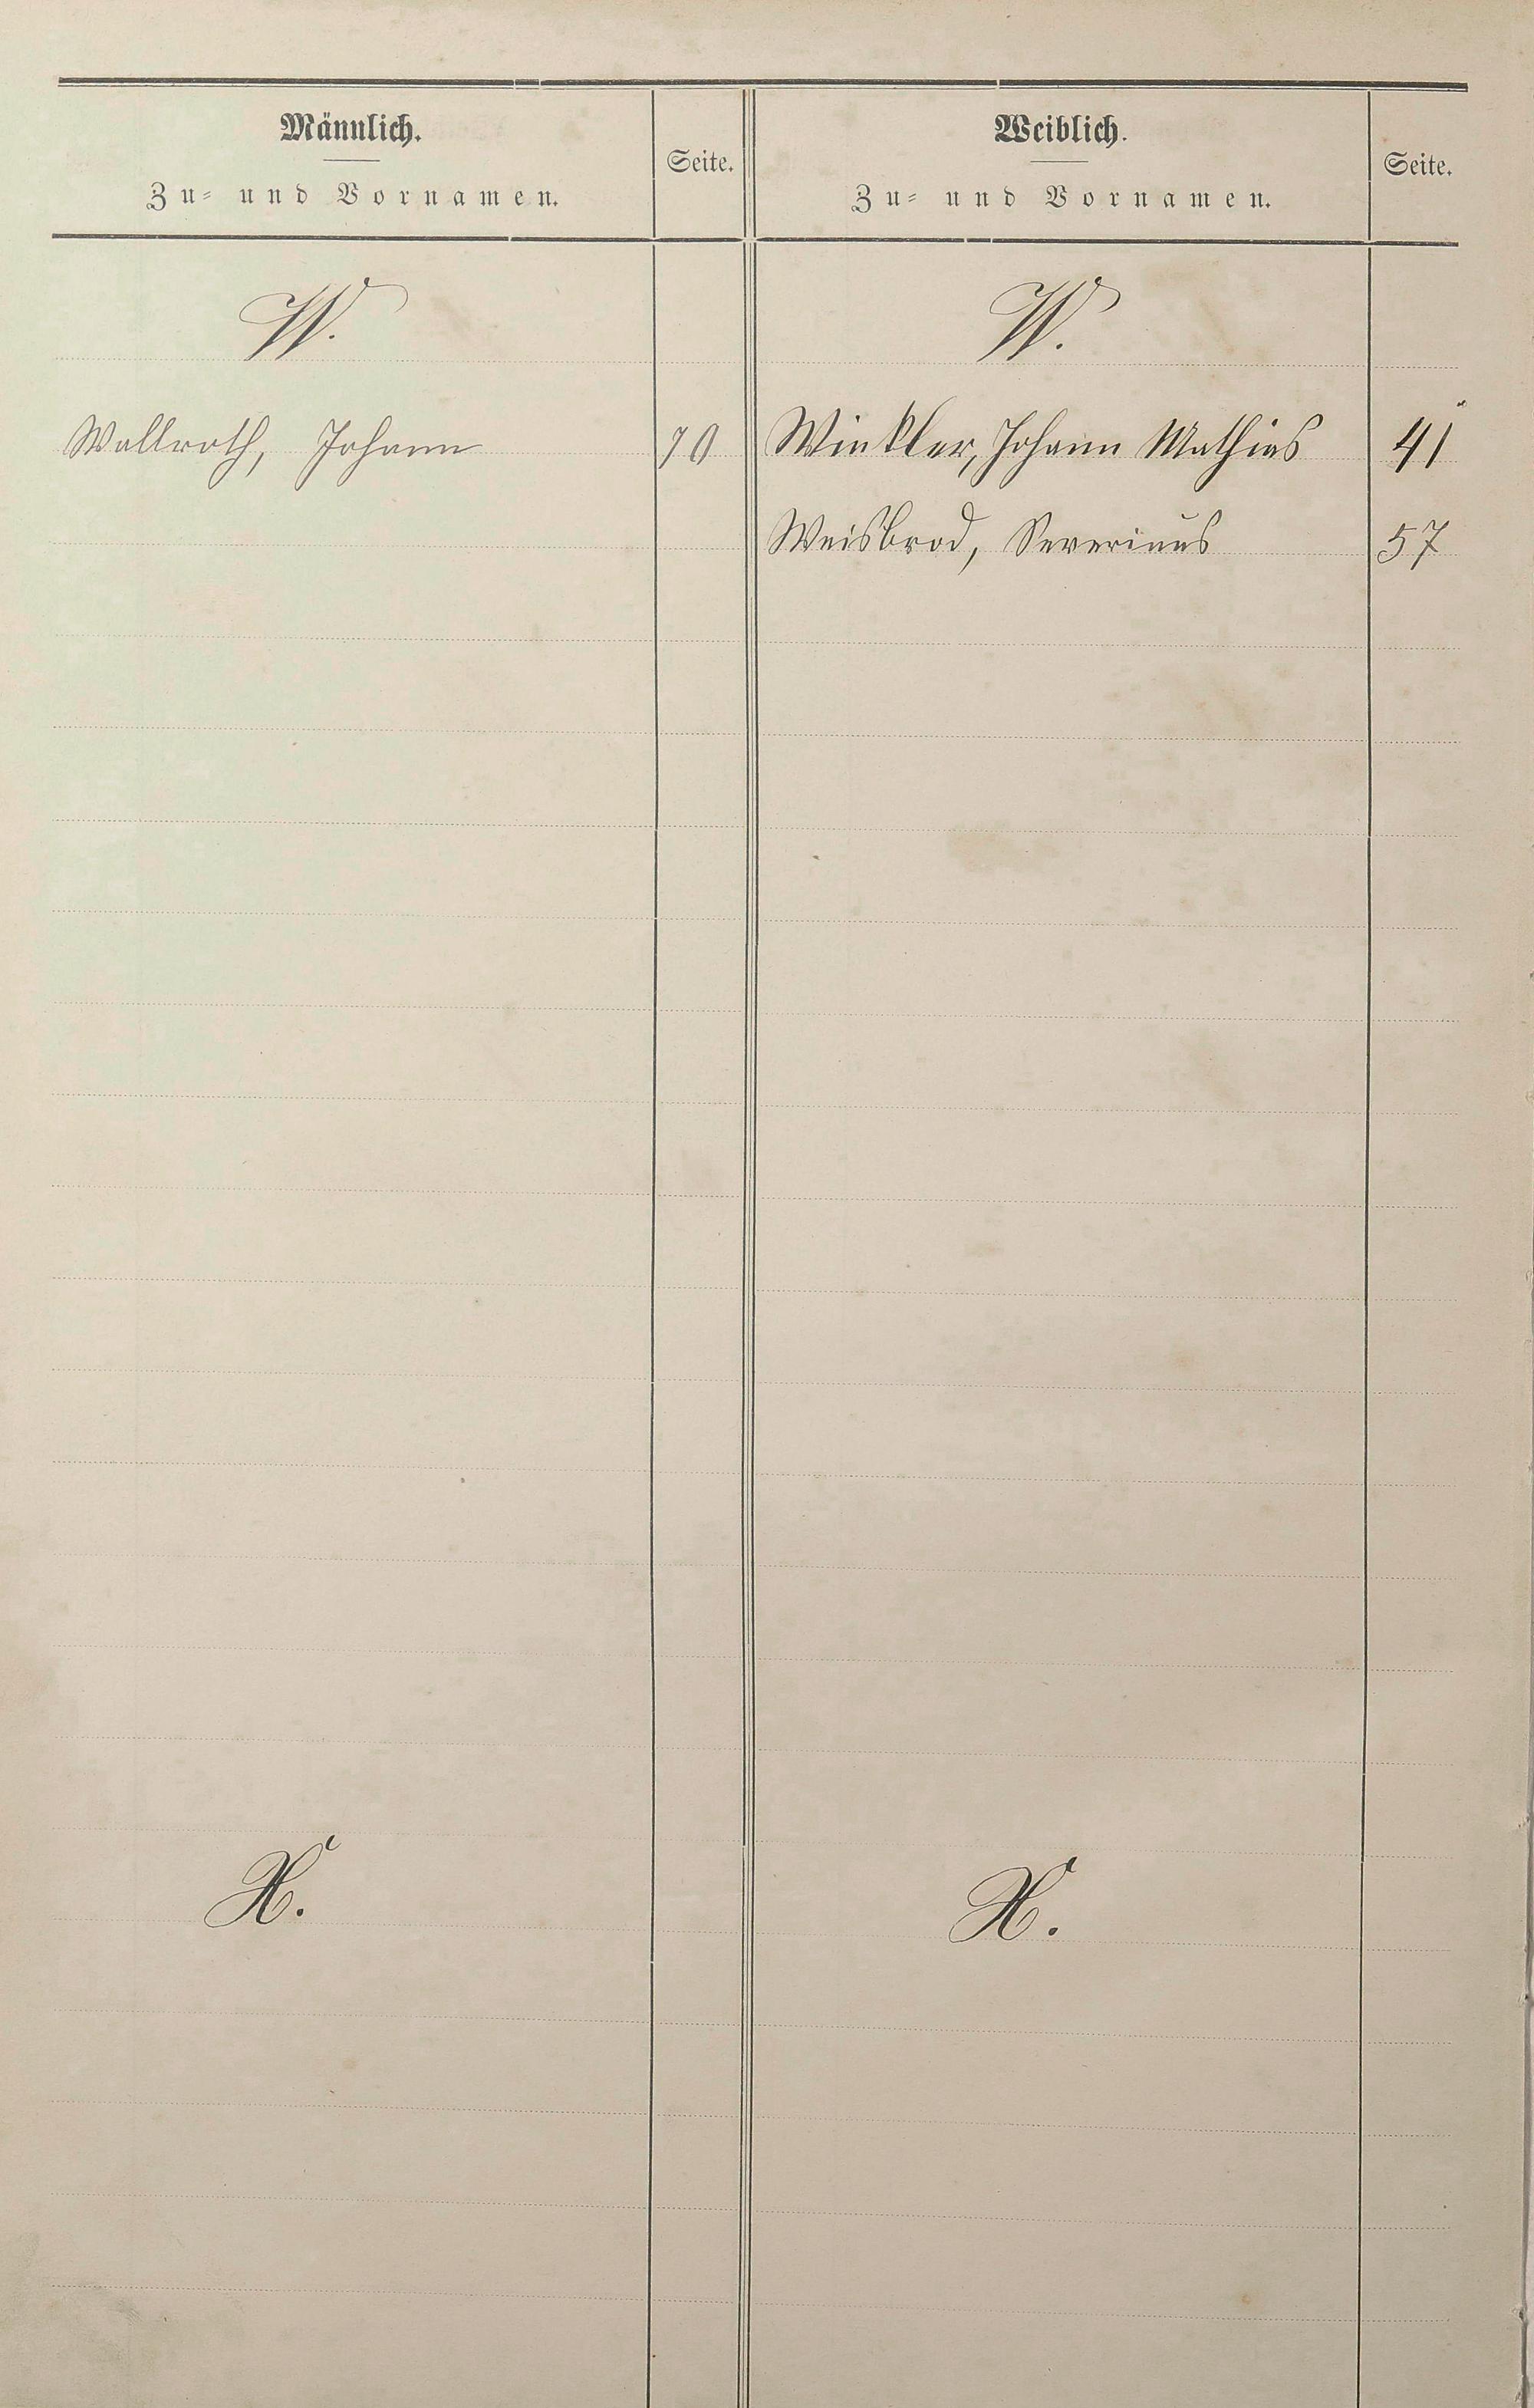 Männlich.
Zu- und Vornamen.
Seite.
Weiblich.
Zu- und Vornamen.
Seite.
W.
W.
Wallroth, Johann 70
Winkler, Johann Mathias 41
Weisbrod, Severinus 57
X.
X.